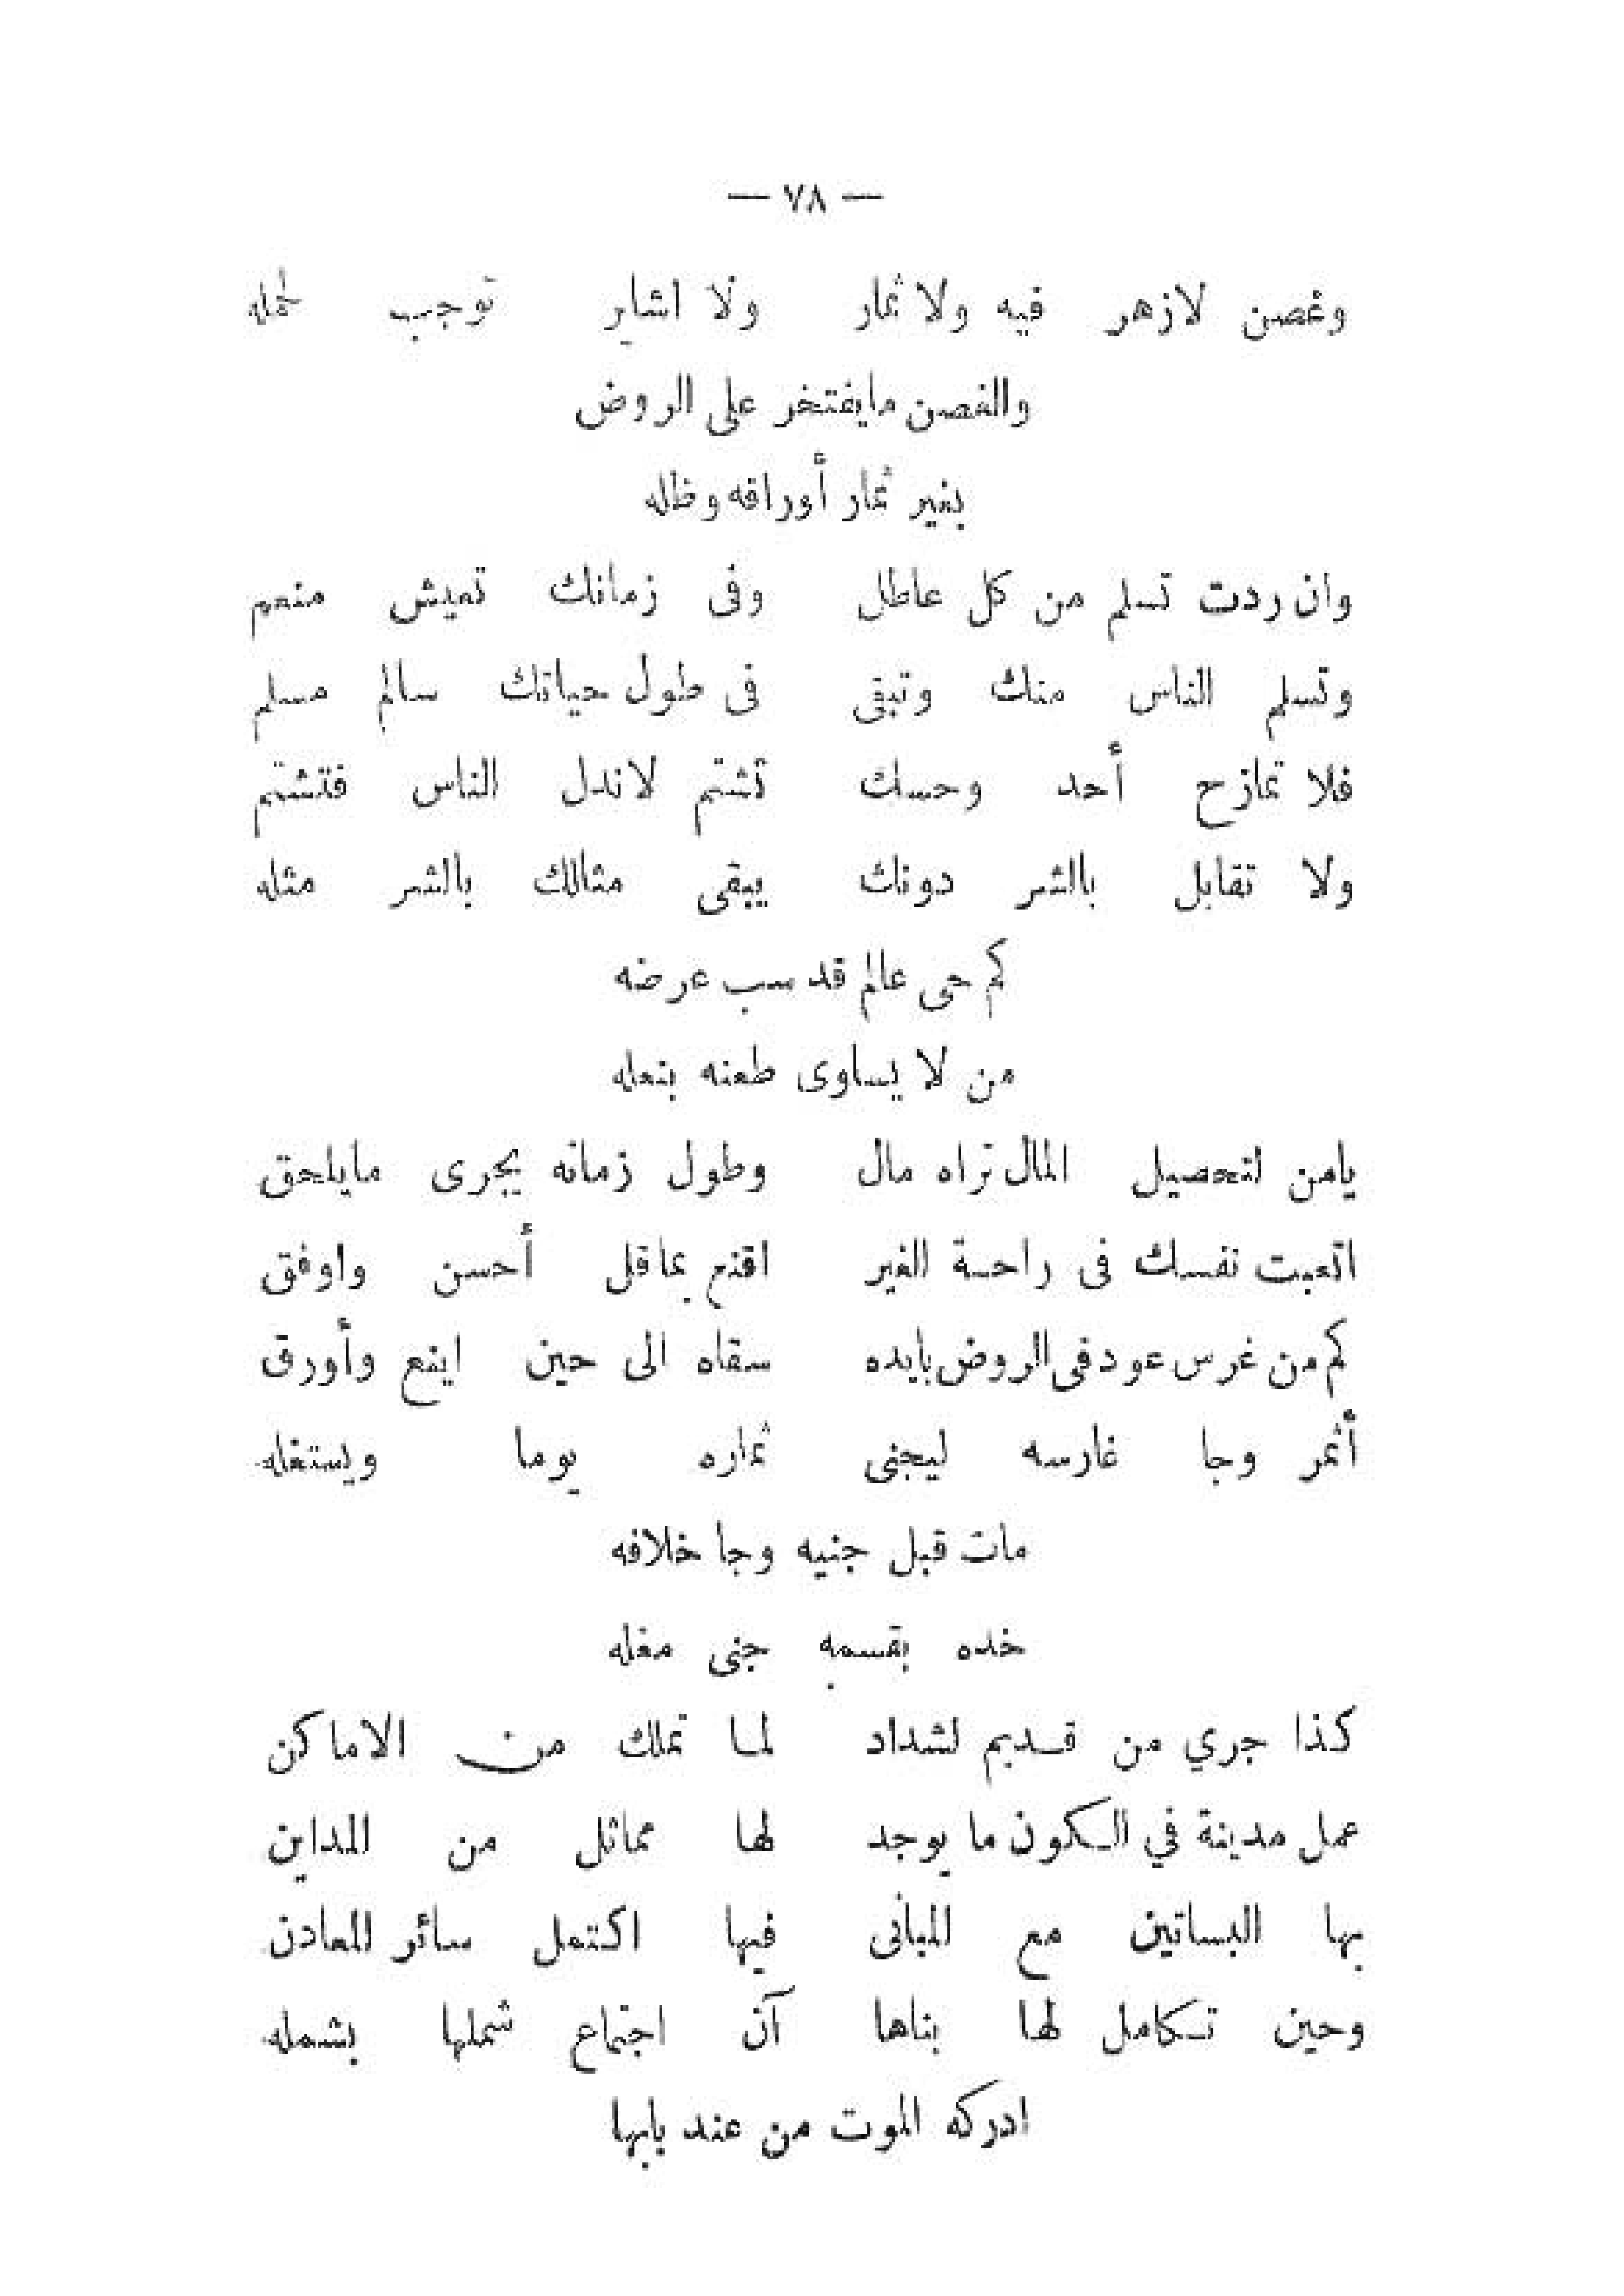 — ٧٨ —
وغصن لازهر فيه ولا ثمار ولا اشاير توجب لحمله
والغصن مايفتخر على الروض
بغير ثمار أوراقه وظله
وان ردت تسلم من كل عاطل وفى زمانك تعيش منعم
وتسلم الناس منك وتبقى فى طول حياتك سالم مسلم
فلا تمازح أحد وحسك تشتم لاندل الناس فتشتم
ولا تقابل بالشر دونك يبقى مثالك بالشر مثله
كم حى عالم قد سب عرضه
من لا يساوى طعنه بنعله
يامن لتحصيل المال تراه مال وطول زمانه يجرى مايلحق
اتعبت نفسك فى راحة الغير اقنع بما قل أحسن واوفق
كم من غرس عود فى الروض بأيده سقاه الى حين اينع وأورق
أثمر وجا غارسه ليجنى ثماره يوما ويستغله
مات قبل جنيه وجا خلافه
خده بقسمه جنى مغله
كذا جري من قديم لشداد لما تملك من الاماكن
عمل مدينة في الكون ما يوجد لها مماثل من المداين
بها البساتين مع المبانى فيها اكتمل سائر المعادن
وحين تكامل لها بناها آن اجتماع شملها بشمله
ادركه الموت من عند بابها